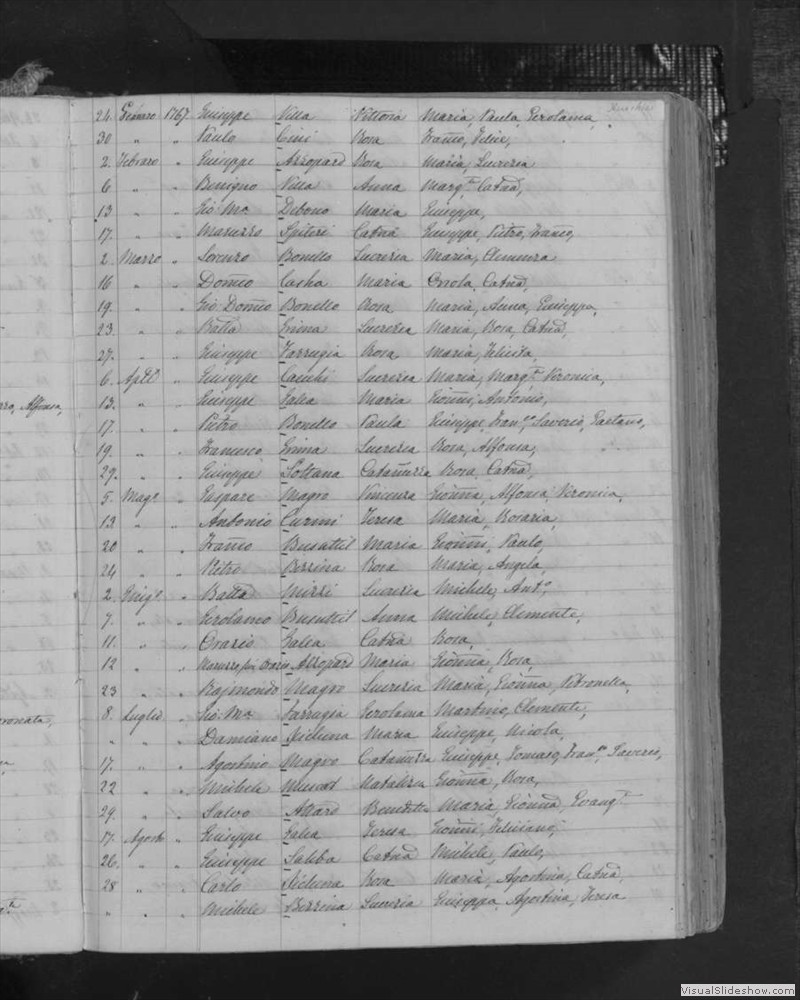 24. Gennaro 1767 Giuseppe Villa Vittoria Maria, Paula, Gerolama,
30 " " Paulo Cini Rosa Franco, Felice,
2. Febraro " Giuseppe Azzopard Rosa Maria, Lucrezia
6 " " Benigno Villa Anna Marga. Catna,
13 " " Gio: Ma. Debono Maria Giuseppe,
17. " " Maruzzo Spiteri Catna Giuseppe, Pietro, Franco,
2. Marzo " Lorenzo Bonello Lucrezia Maria, Clemenza
16 " " Domco Casha Maria Orsola, Catna,
19. " " Gio: Domco Bonello Rosa Maria, Anna, Giuseppa,
23. " " Batta Grima Lucrezia Maria, Rosa, Catna,
27. " " Giuseppe Farrugia Rosa Maria, Felicita,
6. Aple " Giuseppe Cauchi Lucrezia Maria, Marga. Veronica,
13. " " Giuseppe Galea Maria Gionni, Antonio,
17. " " Pietro Bonello Paula Giuseppe, Franco. Saverio, Gaetano,
19. " " Francesco Grima Lucrezia Rosa, Alfonsa,
29. " " Giuseppe Soltana Catanuzza Rosa, Catna,
5. Mago. " Gaspare Magro Vincenza Gionna, Alfonsa, Veronica,
13 " " Antonio Curmi Teresa Maria, Rosaria,
20 " " Franco Busuttil Maria Gionni, Paulo,
24 " " Pietro Bezzina Rosa Maria, Angela,
2. Giugo. " Batta Mizzi Lucrezia Michele, Anto.
7. " " Gerolamo Busuttil Anna Michele, Clemente,
11. " " Orazio Galea Catna Rosa,
12 " " Azzopard Maria Gionna, Rosa,
23 " " Rajmondo Magro Lucrezia Maria, Gionna, Petronella,
8. Luglio " Gio: Ma. Farrugia Gerolama Martino, Clemente,
" " " Damiano Xicluna Maria Giuseppe, Nicola,
17. " " Agostino Magro Catanuzza Giuseppe, Tomaso, Franco. Saverio,
22 " " Michele Muscat Natalizza Gionna, Rosa,
29. " " Salvo Attard Benedetta Maria Gionna, Evangta.
17. Agosto " Giuseppe Galea Teresa Gionni, Feliciano,
26. " " Giuseppe Saliba Catna Michele, Paulo,
28 " " Carlo Xicluna Rosa Maria, Agostina, Catna,
" " " Michele Bezzina Lucrezia Giuseppa, Agostina, Teresa
Alfonsa,
VisualSlideshow.com